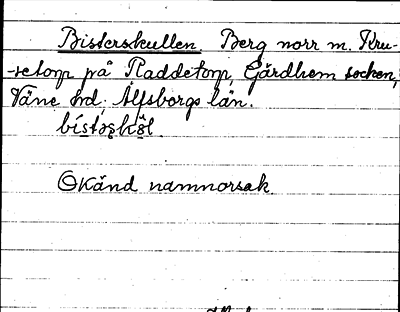 Bisterskullen. Berg norr m. Kru-
-setorp på Raddetorp, Gärdhem socken,
Väne hd. Älfsborgs län.
Okänd namnorsak